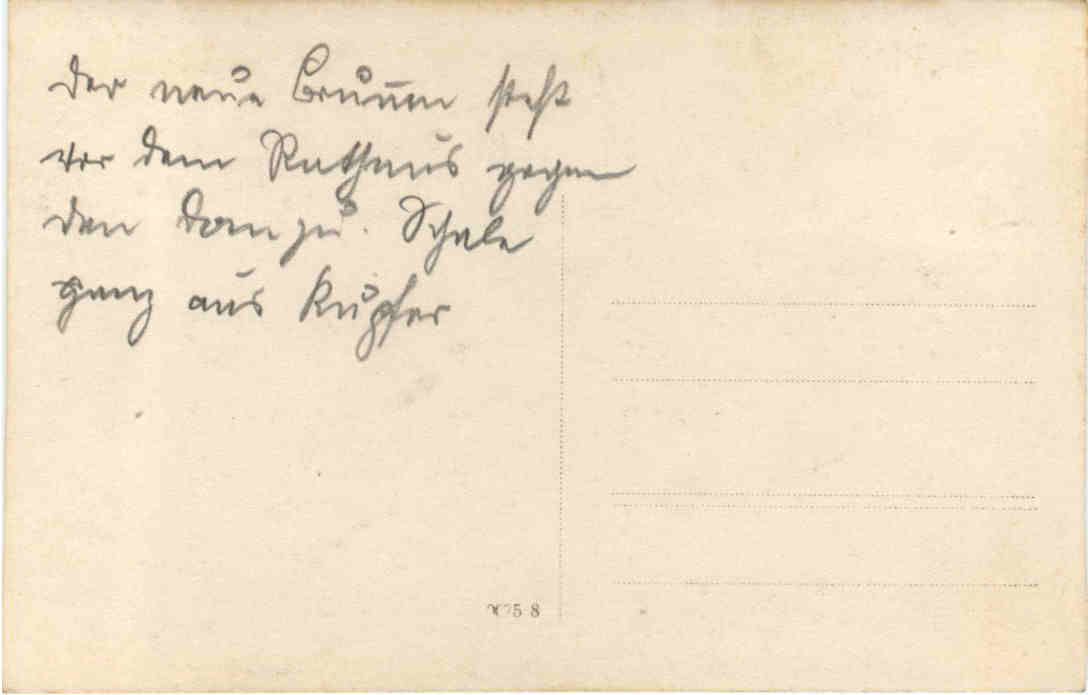 der neue Brunnen steht
vor dem Rathaus gegen
den Dom zu. Schale
ganz aus Kupfer
5 8